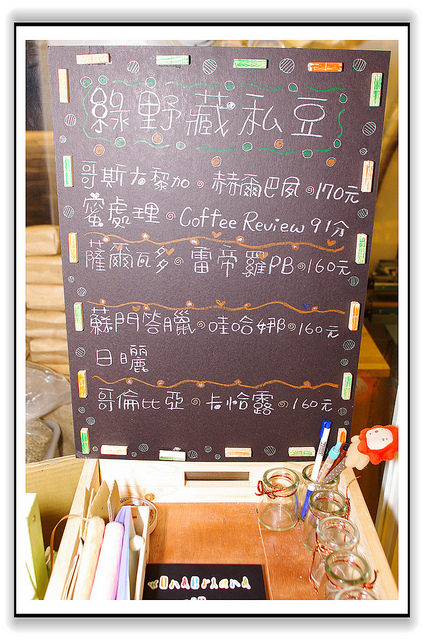 綠野藏私豆
哥斯大黎加。赫爾巴夙。170元
蜜處理。Coffee Review 91分
薩爾瓦多。雷帝羅PB。160元
蘇門答臘。哇哈娜。160元
日曬
哥倫比亞。卡恰露。160元
wOnAOrLAnd